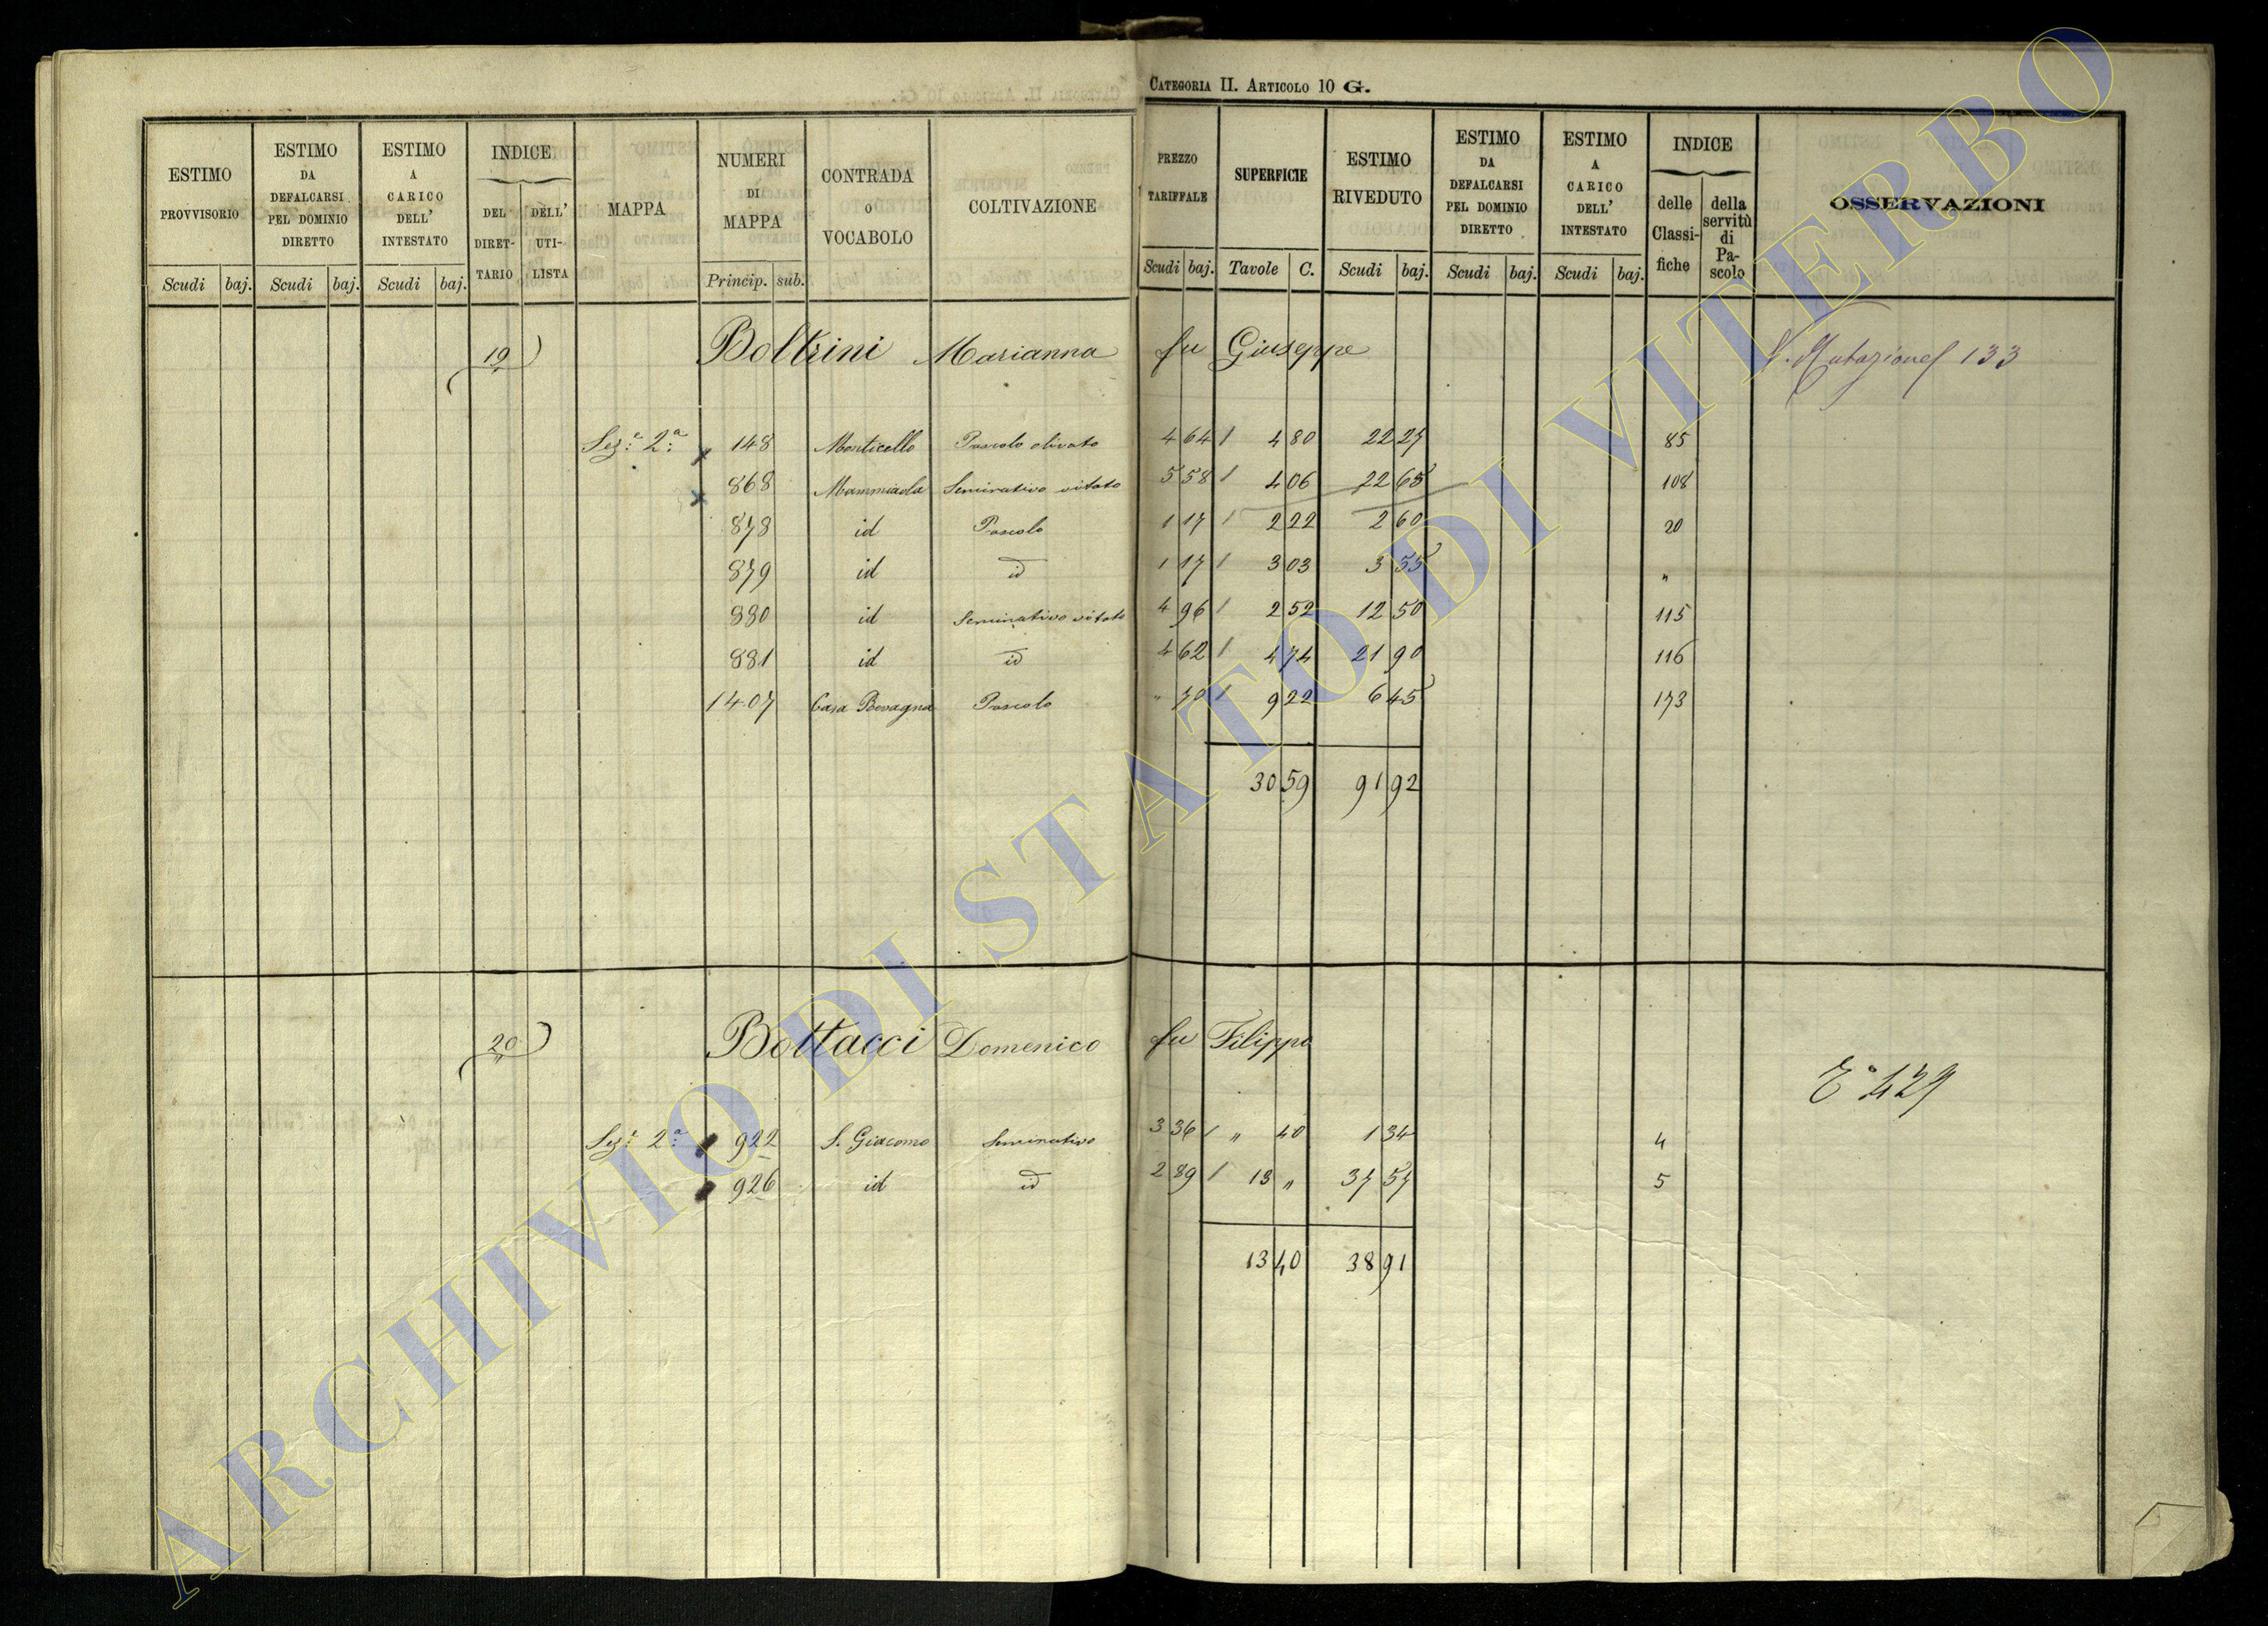 CATEGORIA II. ARTICOLO 10 G.
ESTIMO PROVVISORIO
ESTIMO DA DEFALCARSI PEL DOMINIO DIRETTO
ESTIMO A CARICO DELL' INTESTATO
INDICE
DEL DIRET-TARIO
DELL' UTI-LISTA
MAPPA
NUMERI DI MAPPA
CONTRADA O VOCABOLO
COLTIVAZIONE
PREZZO TARIFFALE
SUPERFICIE
ESTIMO RIVEDUTO
ESTIMO DA DEFALCARSI PEL DOMINIO DIRETTO
ESTIMO A CARICO DELL' INTESTATO
INDICE
delle Classi-fiche
della servitù di Pa-scolo
OSSERVAZIONI
Scudi baj. Scudi baj. Scudi baj. Princip. sub. Scudi baj. Tavole C. Scudi baj. Scudi baj. Scudi baj.
19 Boltrini Marianna fu Giuseppe V. Mutazione 133
Sez.e 2a 148 Monticello Pascolo olivato 4 64 4 80 22 27 85
868 Mammiada Seminativo vitato 5 58 4 06 22 65 108
878 id Pascolo 1 17 2 22 2 60 20
879 id id 1 17 3 03 3 55 "
880 id Seminativo vitato 4 96 2 52 12 50 115
881 id id 4 62 4 74 21 90 116
1407 Casa Bevagna Pascolo " 70 9 22 6 45 173
30 59 91 92
20 Bottacci Domenico fu Filippo
E° 429
Sez.e 2a 922 S. Giacomo Seminativo 3 36 " 40 1 34 4
926 id id 2 89 13 " 37 57 5
13 40 38 91
ARCHIVIO DI STATO DI VITERBO